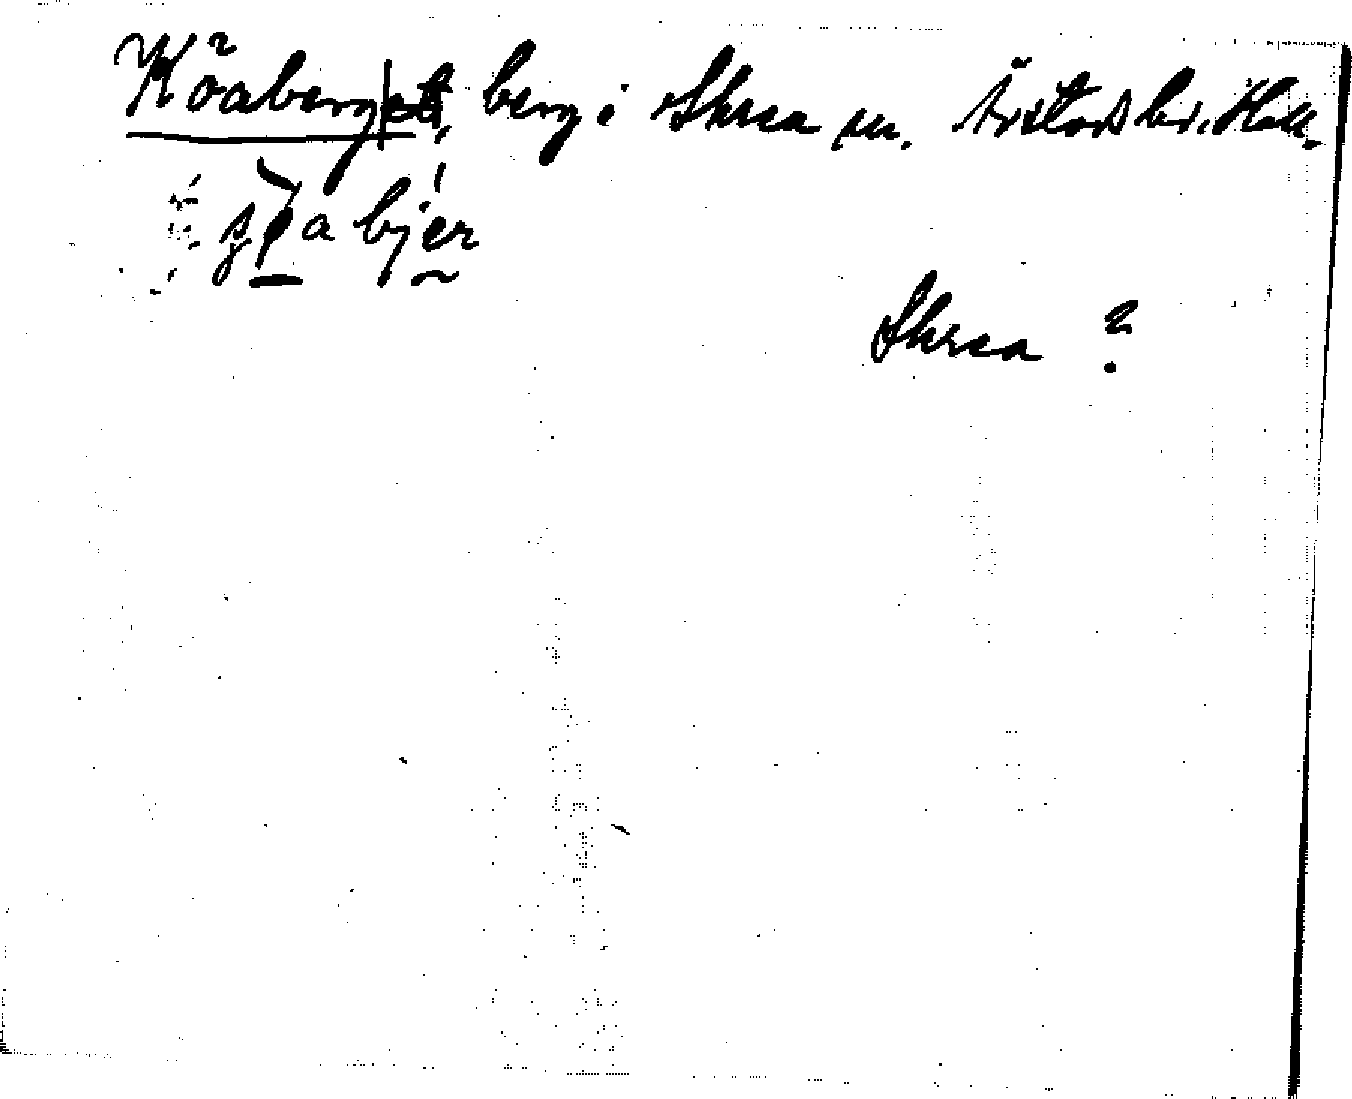 Köaberget, berg i Skrea sn. Årstads hd. Hall.
Skrea ?